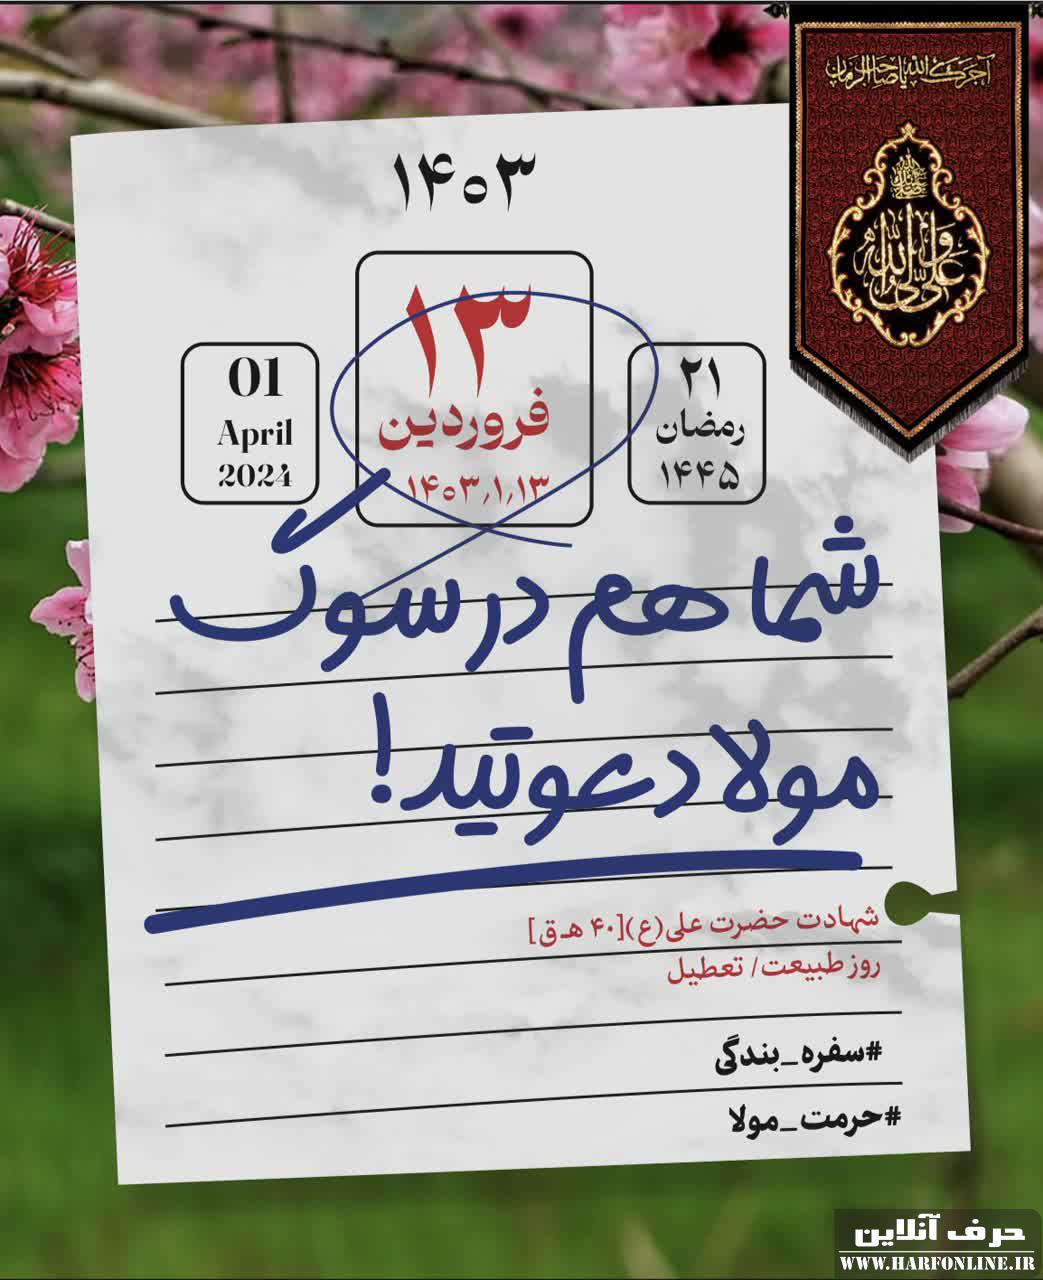 آجرک الله یا صاحب الزمان
علی ولی الله
۱۴۰۳
۱۳
فروردین
۱۴۰۳٫۱٫۱۳
01
April
2024
۲۱
رمضان
۱۴۴۵
شما هم در سوگ
مولا دعوتید!
شهادت حضرت علی(ع)[۴۰ هـ ق]
روز طبیعت/ تعطیل
#سفره_بندگی
#حرمت_مولا
حرف آنلاین
WWW.HARFONLINE.IR